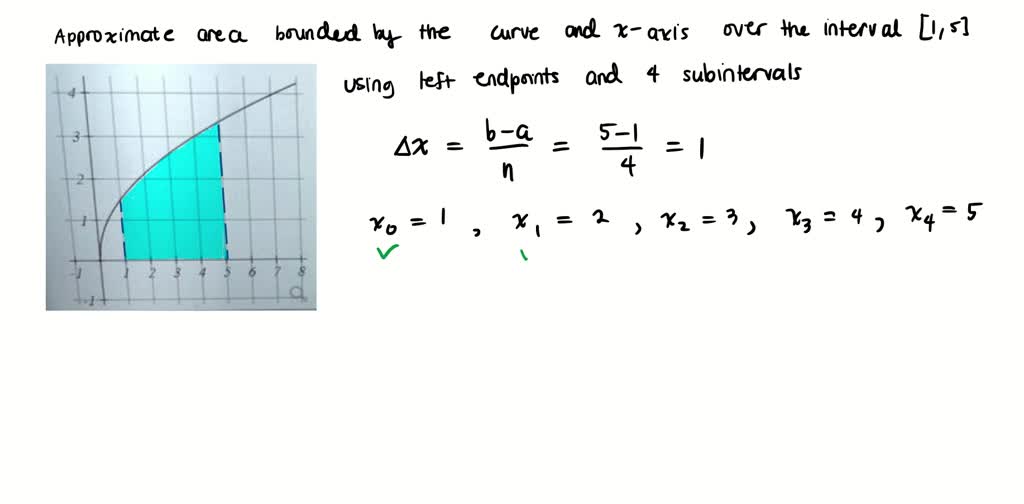 Approximate area bounded by the curve and x-axis over the interval [1,5]
using left endpoints and 4 subintervals
Δx = b-a/n = 5-1/4 = 1
x₀ = 1 , x₁ = 2 , x₂ = 3 , x₃ = 4 , x₄ = 5
4
3
2
1
-1 1 2 3 4 5 6 7 8
-1